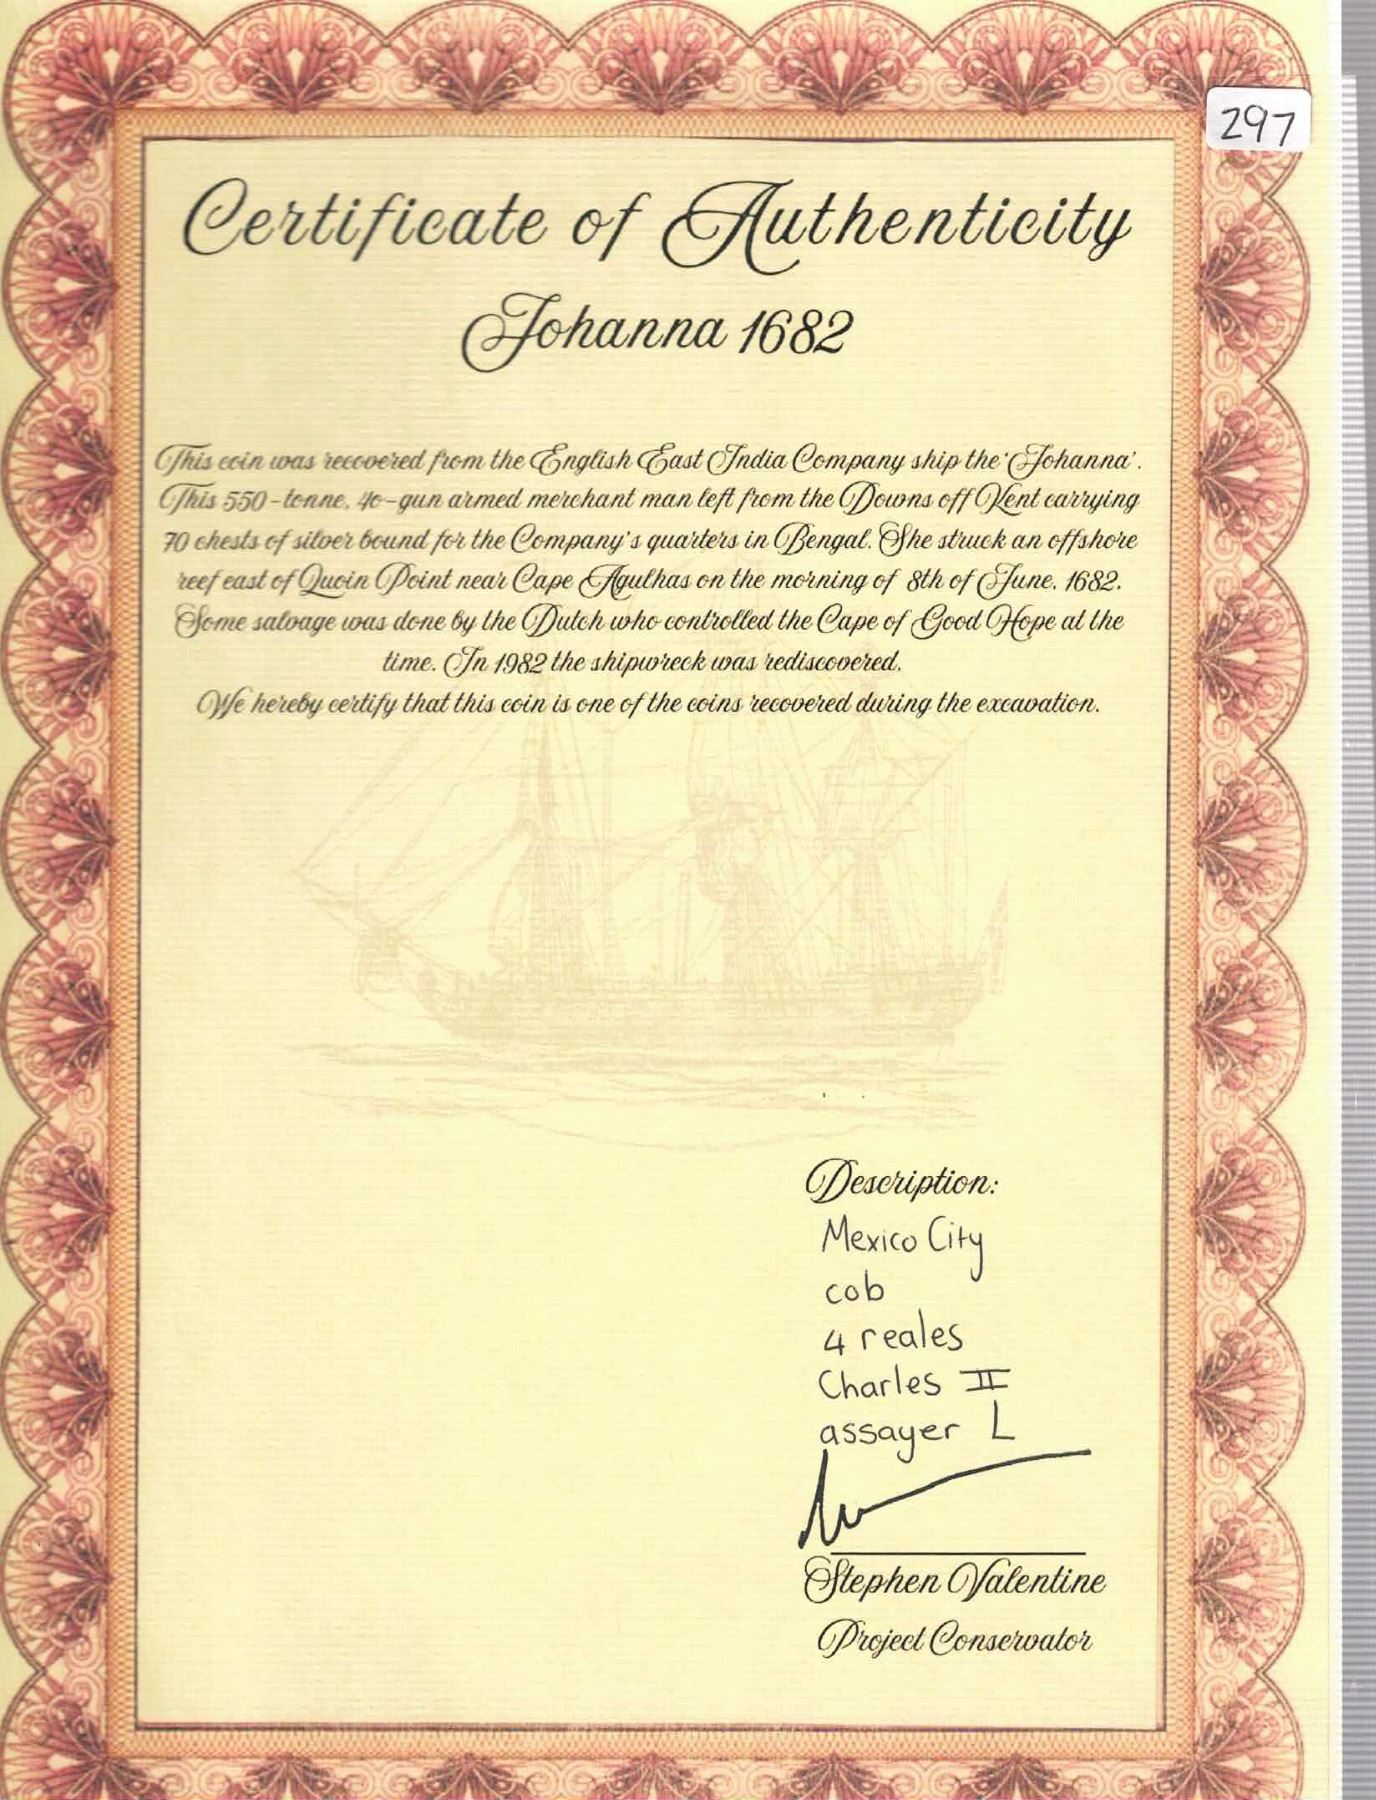 297
Certificate of Authenticity
Johanna 1682
This coin was recovered from the English East India Company ship the 'Johanna'.
This 550-tonne, 40-gun armed merchant man left from the Downs off Kent carrying
70 chests of silver bound for the Company's quarters in Bengal. She struck an offshore
reef east of Quoin Point near Cape Agulhas on the morning of 8th of June, 1682.
Some salvage was done by the Dutch who controlled the Cape of Good Hope at the
time. In 1982 the shipwreck was rediscovered.
We hereby certify that this coin is one of the coins recovered during the excavation.
Description:
Mexico City
cob
4 reales
Charles II
assayer L
Stephen Valentine
Project Conservator